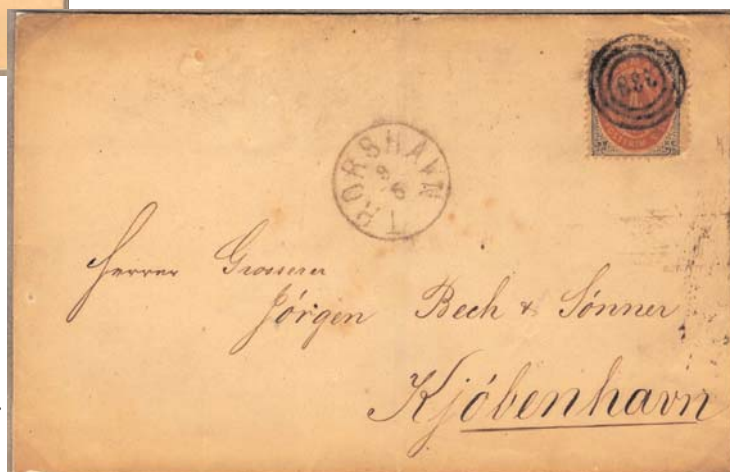 238
THORSHAVN
8/6
Herrer Grosserer
Jörgen Bech & Sönner
Kjöbenhavn